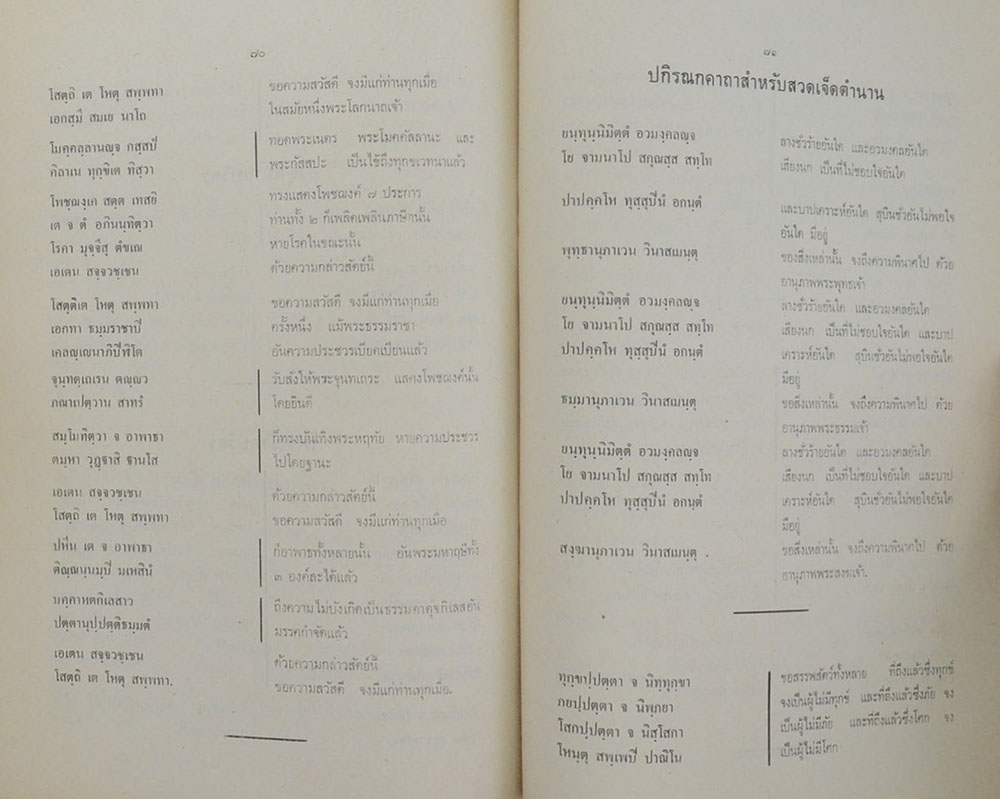 ๗๐
โสตฺถิ เต โหตุ สพฺพทา
ขอความสวัสดี จงมีแก่ท่านทุกเมื่อ
เอกสฺมึ สมเย นาโถ
ในสมัยหนึ่งพระโลกนาถเจ้า
โมคฺคลฺลานญฺจ กสฺสปํ
ทอดพระเนตร พระโมคคัลลานะ และ
คิลาเน ทุกฺขิเต ทิสฺวา
พระกัสสปะ เป็นไข้ถึงทุกขเวทนาแล้ว
โพชฺฌงฺเค สตฺต เทสยิ
ทรงแสดงโพชฌงค์ ๗ ประการ
เต จ ตํ อภินนฺทิตฺวา
ท่านทั้ง ๒ ก็เพลิดเพลินภาษิตนั้น
โรคา มุจฺจึสุ ตํขเณ
หายโรคในขณะนั้น
เอเตน สจฺจวชฺเชน
ด้วยความกล่าวสัตย์นี้
โสตฺติเต โหตุ สพฺพทา
ขอความสวัสดี จงมีแก่ท่านทุกเมื่อ
เอกทา ธมฺมราชาปิ
ครั้งหนึ่ง แม้พระธรรมราชา
เคลญฺเญนาภิปีฬิโต
อันความประชวรเบียดเบียนแล้ว
จุนฺทตฺเถเรน ตญฺญว
รับสั่งให้พระจุนทเถระ แสดงโพชฌงค์นั้น
ภณาเปตฺวาน สาทรํ
โดยยินดี
สมฺโมทิตฺวา จ อาพาธา
ก็ทรงบันเทิงพระหฤทัย หายความประชวร
ตมฺหา วุฏฺฐาสิ ฐานโส
ไปโดยฐานะ
เอเตน สจฺจวชฺเชน
ด้วยความกล่าวสัตย์นี้
โสตฺถิ เต โหตุ สพฺพทา
ขอความสวัสดี จงมีแก่ท่านทุกเมื่อ
ปหีน เต จ อาพาธา
ก็อาพาธทั้งหลายนั้น อันพระมหาฤษีทั้ง
ติณฺณนฺนมฺปิ มเหสินํ
๓ องค์ละได้แล้ว
มคฺคาหตกิเลสาว
ถึงความไม่บังเกิดเป็นธรรมดาดุจกิเลสอัน
ปตฺตานุปฺปตฺติธมฺมตํ
มรรคกำจัดแล้ว
เอเตน สจฺจวชฺเชน
ด้วยความกล่าวสัตย์นี้
โสตฺถิ เต โหตุ สพฺพทา.
ขอความสวัสดี จงมีแก่ท่านทุกเมื่อ.
๗๑
ปกิรณกคาถาสำหรับสวดเจ็ดตำนาน
ยนฺทุนฺนิมิตฺตํ อวมงฺคลญฺจ
ลางชั่วร้ายอันใด และอวมงคลอันใด
โย จามนาโป สกุณสฺส สทฺโท
เสียงนก เป็นที่ไม่ชอบใจอันใด
ปาปคฺคโห ทุสฺสุปินํ อกนฺตํ
และบาปเคราะห์อันใด สุบินชั่วอันไม่พอใจ
อันใด มีอยู่
พุทฺธานุภาเวน วินาสเมนฺตุ
ของสิ่งเหล่านั้น จงถึงความพินาศไป ด้วย
อานุภาพพระพุทธเจ้า
ยนฺทุนฺนิมิตฺตํ อวมงฺคลญฺจ
ลางชั่วร้ายอันใด และอวมงคลอันใด
โย จามนาโป สกุณสฺส สทฺโท
เสียงนก เป็นที่ไม่ชอบใจอันใด และบาป
ปาปคฺคโห ทุสฺสุปินํ อกนฺตํ
เคราะห์อันใด สุบินชั่วอันไม่พอใจอันใด
มีอยู่
ธมฺมานุภาเวน วินาสเมนฺตุ
ขอสิ่งเหล่านั้น จงถึงความพินาศไป ด้วย
อานุภาพพระธรรมเจ้า
ยนฺทุนฺนิมิตฺตํ อวมงฺคลญฺจ
ลางชั่วร้ายอันใด และอวมงคลอันใด
โย จามนาโป สกุณสฺส สทฺโท
เสียงนก เป็นที่ไม่ชอบใจอันใด และบาป
ปาปคฺคโห ทุสฺสุปินํ อกนฺตํ
เคราะห์อันใด สุบินชั่วอันไม่พอใจอันใด
มีอยู่
สงฺฆานุภาเวน วินาสเมนฺตุ .
ขอสิ่งเหล่านั้น จงถึงความพินาศไป ด้วย
อานุภาพพระสงฆเจ้า.
ทุกฺขปฺปตฺตา จ นิทฺทุกฺขา
ขอสรรพสัตว์ทั้งหลาย ที่ถึงแล้วซึ่งทุกข์
ภยปฺปตฺตา จ นิพฺภยา
จงเป็นผู้ไม่มีทุกข์ และที่ถึงแล้วซึ่งภัย จง
โสกปฺปตฺตา จ นิสฺโสกา
เป็นผู้ไม่มีภัย และที่ถึงแล้วซึ่งโศก จง
โหนฺตุ สพฺเพปิ ปาณิโน
เป็นผู้ไม่มีโศก